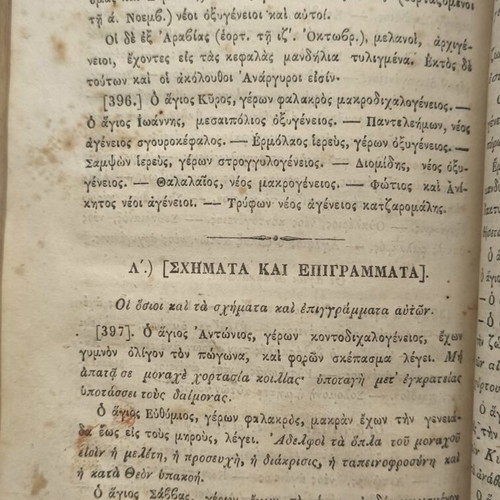 τῇ ά. Νοεμβ.) νέοι ὀξυγένειοι καὶ αὐτοί.
Οἱ δὲ ἐξ Ἀραβίας (ἑορτ. τῇ ιζ΄. Ὀκτωβρ.), μελανοὶ, ἀρχιγέ-
νειοι, ἔχοντες εἰς τὰς κεφαλὰς μανδήλια τυλιγμένα. Ἐκτὸς δὲ
τούτων καὶ οἱ ἀκόλουθοι Ἀνάργυροι εἰσίν.
[396.] Ὁ ἅγιος Κῦρος, γέρων φαλακρὸς μακροδιχαλογένειος. —
Ὁ ἅγιος Ἰωάννης, μεσαιπόλιος ὀξυγένειος. — Παντελεήμων, νέος
ἀγένειος σγουροκέφαλος. — Ἑρμόλαος ἱερεὺς, γέρων ὀξυγένειος. —
Σαμψὼν ἱερεὺς, γέρων στρογγυλογένειος. — Διομίδης, νέος ὀξυ-
γένειος. — Θαλαλαῖος, νέος μακρογένειος. — Φώτιος καὶ Ἀνί-
κητος νέοι ἀγένειοι. — Τρύφων νέος ἀγένειος κατζαρομάλης.
Λ΄.) [ΣΧΗΜΑΤΑ ΚΑΙ ΕΠΙΓΡΑΜΜΑΤΑ].
Οἱ ὅσιοι καὶ τὰ σχήματα καὶ ἐπιγγράμματα αὐτῶν.
[397]. Ὁ ἅγιος Ἀντώνιος, γέρων κοντοδιχαλογένειος, ἔχων
γυμνὸν ὀλίγον τὸν πώγωνα, καὶ φορῶν σκέπασμα λέγει. Μὴ
ἀπατᾷ σε μοναχὲ χορτασία κοιλίας· ὑποταγὴ μετ' ἐγκρατείας
ὑποτάσσει τοὺς δαίμονας.
Ὁ ἅγιος Εὐθύμιος, γέρων φαλακρὸς, μακρὰν ἔχων τὴν γενειά-
δα ἕως εἰς τοὺς μηροὺς, λέγει. Ἀδελφοὶ τὰ ὅπλα τοῦ μοναχοῦ
εἰσὶν ἡ μελίτη, ἡ προσευχὴ, ἡ διάκρισις, ἡ ταπεινοφροσύνη καὶ
ἡ κατὰ Θεὸν ὑπακοή.
Ὁ ἅγιος Σάββας, γέρων